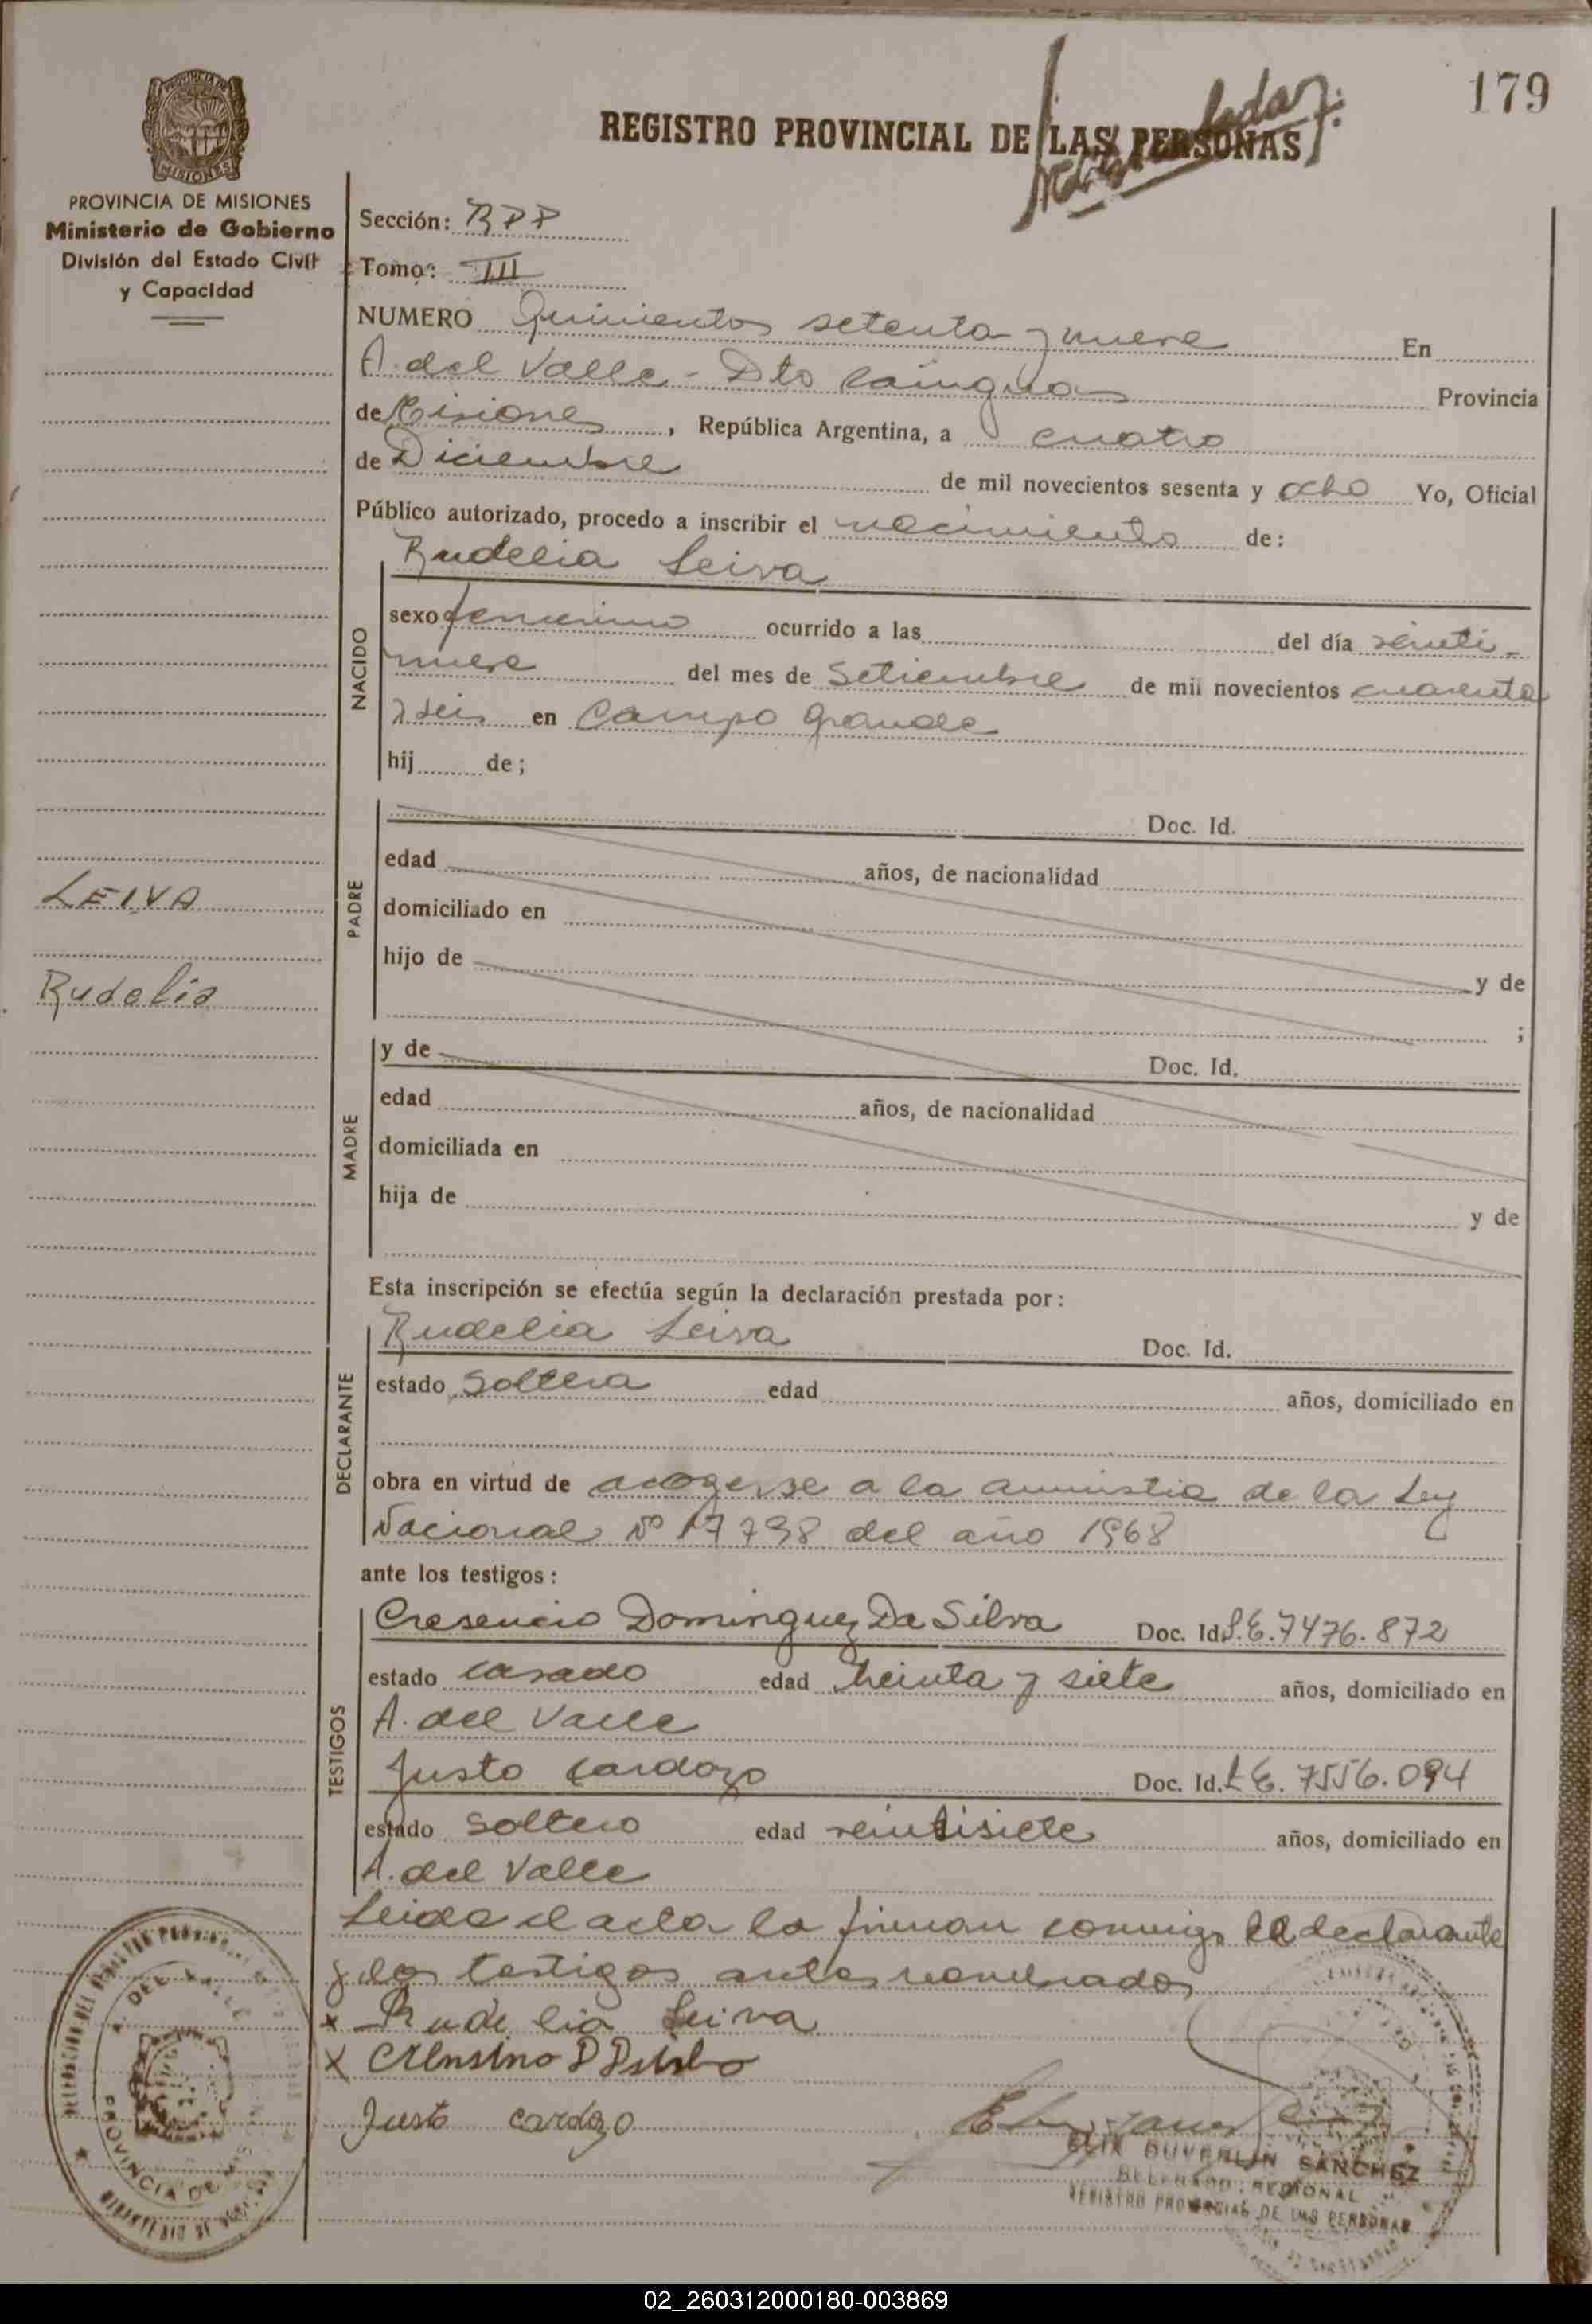 179
REGISTRO PROVINCIAL DE LAS PERSONAS
PROVINCIA DE MISIONES
Ministerio de Gobierno
División del Estado Civil
y Capacidad
LEIVA
Rudelia
Sección: RPP
Tomo: III
NUMERO Quinientos setenta y nueve En
A. del Valle - Dto Cainguas Provincia
de Misiones, República Argentina, a cuatro
de Diciembre de mil novecientos sesenta y ocho Yo, Oficial
Público autorizado, procedo a inscribir el nacimiento de:
Rudelia Leiva
NACIDO
sexo femenino ocurrido a las del día veinti-
nueve del mes de Setiembre de mil novecientos cuarenta
y seis en Campo Grande
hij de;
PADRE
Doc. Id.
edad años, de nacionalidad
domiciliado en
hijo de y de
;
MADRE
y de Doc. Id.
edad años, de nacionalidad
domiciliada en
hija de y de
Esta inscripción se efectúa según la declaración prestada por:
DECLARANTE
Rudelia Leiva Doc. Id.
estado soltera edad años, domiciliado en
obra en virtud de acogerse a la amnistia de la Ley
Nacional Nº 17798 del año 1968
ante los testigos:
TESTIGOS
Cresencio Dominguez Da Silva Doc. Id. L.E. 7476.872
estado casado edad treinta y siete años, domiciliado en
A. del Valle
Justo Cardozo Doc. Id. L.E. 7556.094
estado soltero edad veintisiete años, domiciliado en
A. del Valle
Leida el acta la firman conmigo la declarante
y los testigos antes nombrados
x Rudelia Leiva
x
Justo Cardozo
DUVERLIN SANCHEZ
DELEGADO REGIONAL
REGISTRO PROVINCIAL DE LAS PERSONAS
A. DEL VALLE
PROVINCIA DE MISIONES
02_260312000180-003869